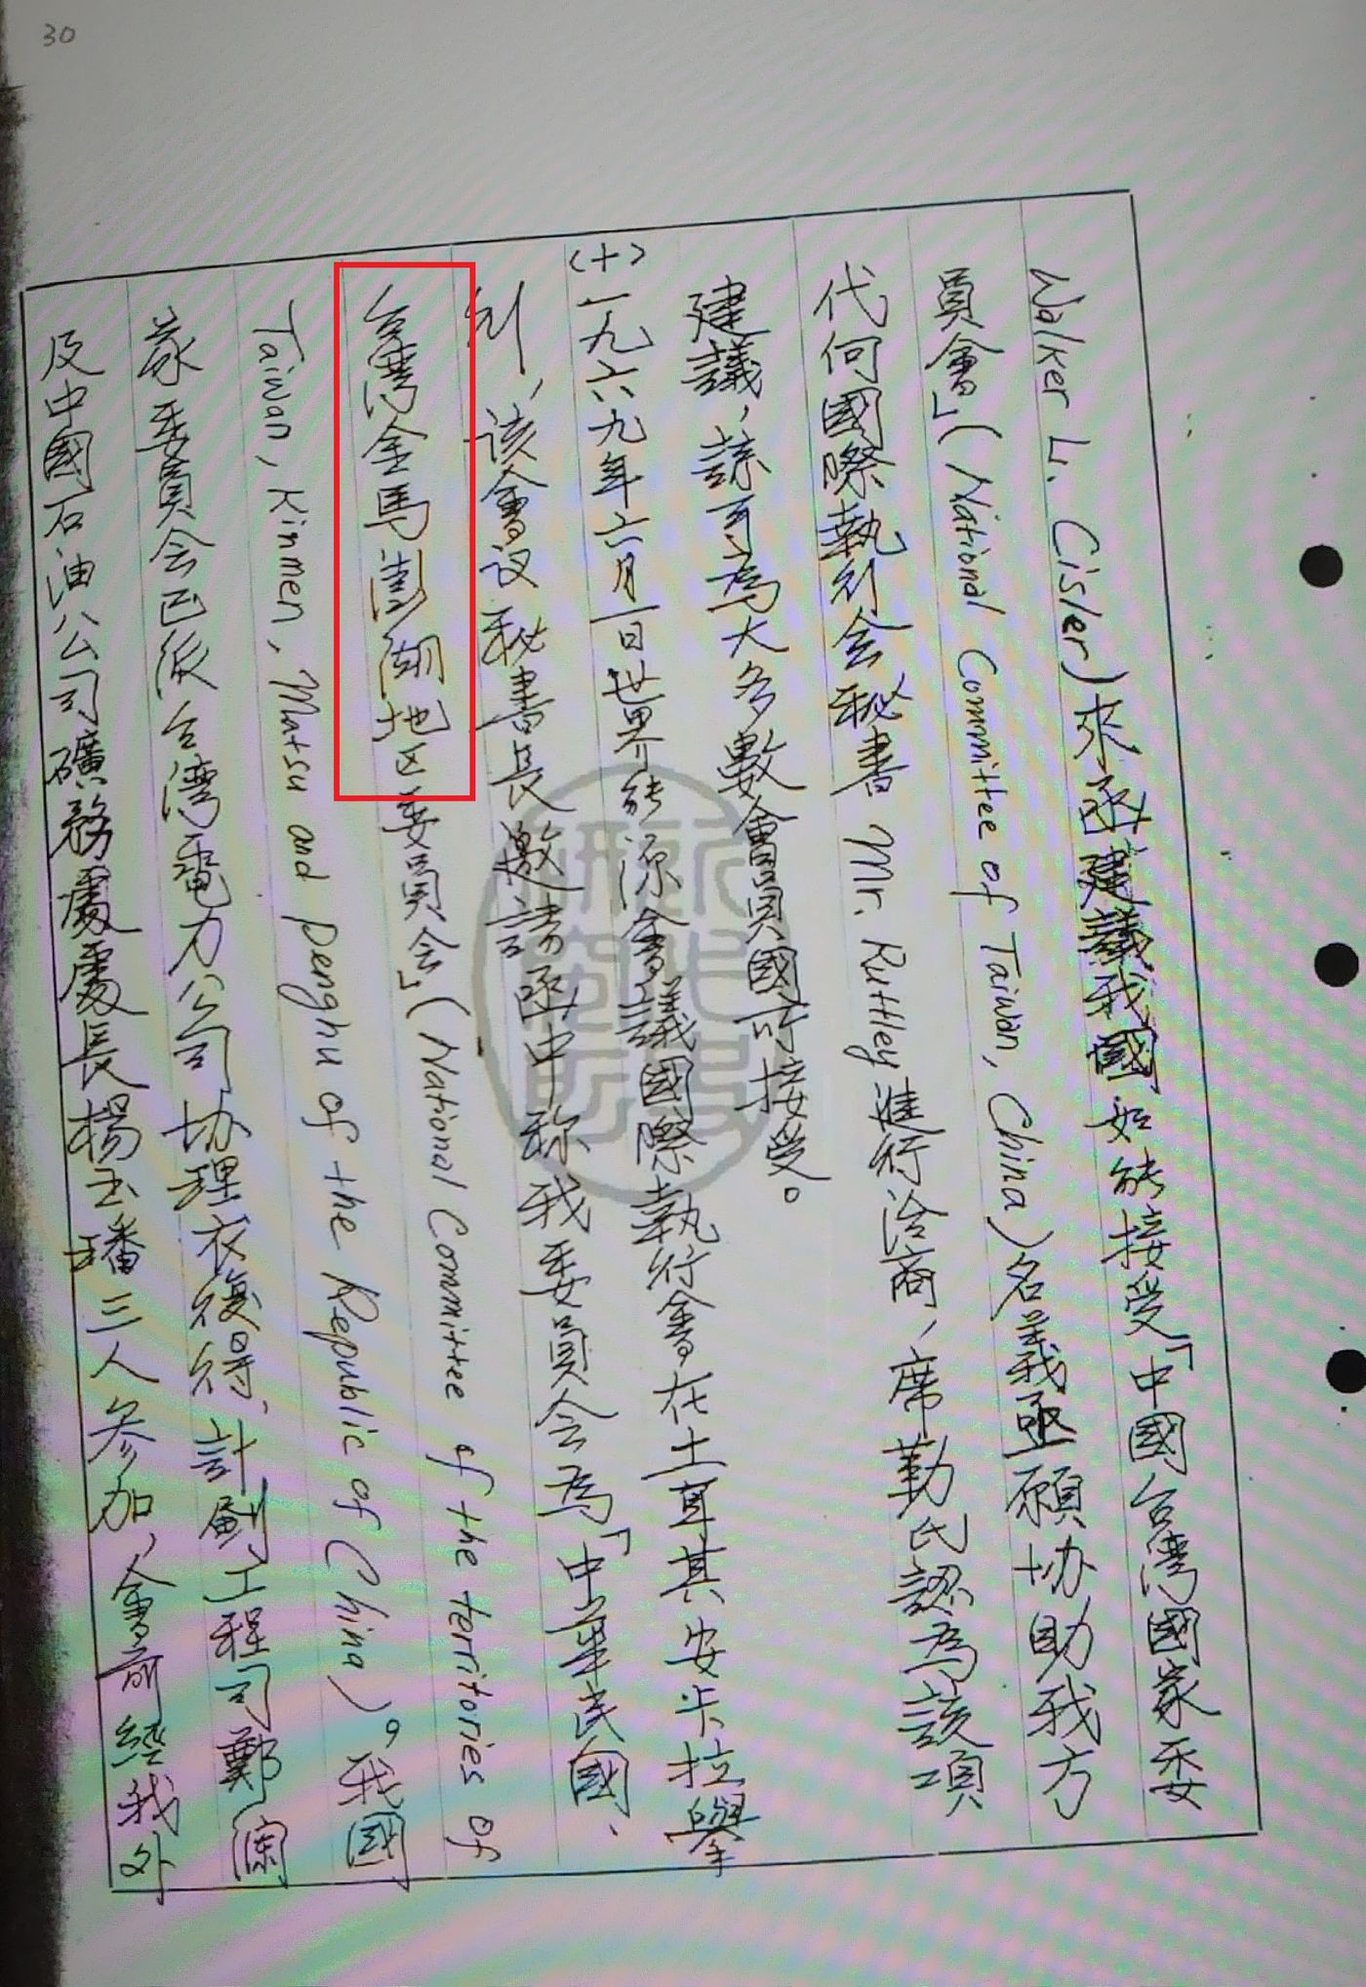 30
Walker L. Cisler)來函建議我國如能接受「中國台灣國家委
員會」(National Committee of Taiwan, China)名義亟願协助我方
代何國際執行会秘書 Mr. Ruttley 進行洽商、席勤氏認為該項
建議,諒可為大多數會員國所接受。
(十)一九六九年六月一日世界能源會議國際執行會在土耳其安卡拉舉
行、该會议秘書長邀請函中称我委員会為「中華民國、
台灣金馬澎湖地区委員会」(National Committee of the territories of
Taiwan, Kinmen, Matsu and Penghu of the Republic of China)。我國
家委員会已派台湾電力公司协理衣復得、計劃工程司鄭
及中國石油公司礦務處處長楊玉璠三人參加,會前經我外